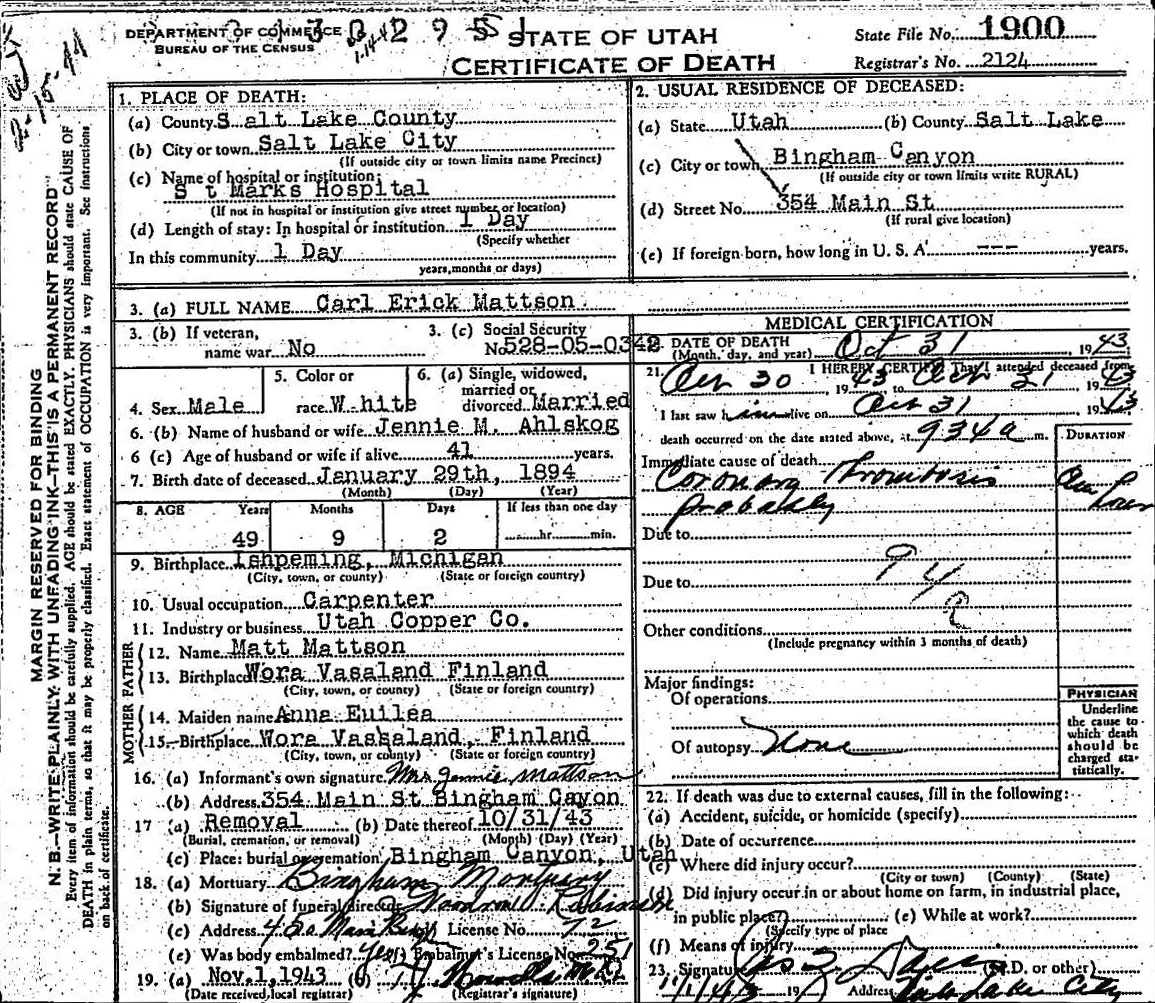 DEPARTMENT OF COMMERCE
BUREAU OF THE CENSUS
STATE OF UTAH
CERTIFICATE OF DEATH
State File No. 1900
Registrar's No. 2124
MARGIN RESERVED FOR BINDING
N. B.—WRITE PLAINLY WITH UNFADING INK—THIS IS A PERMANENT RECORD
Every item of information should be carefully supplied. AGE should be stated EXACTLY. PHYSICIANS should state CAUSE OF
DEATH in plain terms, so that it may be properly classified. Exact statement of OCCUPATION is very important. See instructions
on back of certificate.
1. PLACE OF DEATH:
(a) County S alt Lake County
(b) City or town Salt Lake City
(If outside city or town limits name Precinct)
(c) Name of hospital or institution:
S t Marks Hospital
(If not in hospital or institution give street number or location)
(d) Length of stay: In hospital or institution 1 Day
(Specify whether
In this community 1 Day
years, months or days)
2. USUAL RESIDENCE OF DECEASED:
(a) State Utah (b) County Salt Lake
(c) City or town Bingham Canyon
(If outside city or town limits write RURAL)
(d) Street No. 354 Main St
(If rural give location)
(e) If foreign born, how long in U. S. A. --- years.
3. (a) FULL NAME Carl Erick Mattson
3. (b) If veteran,
name war No
3. (c) Social Security
No. 528-05-0342
4. Sex Male
5. Color or
race W hite
6. (a) Single, widowed,
married or
divorced Married
6. (b) Name of husband or wife Jennie M. Ahlskog
6 (c) Age of husband or wife if alive 41 years.
7. Birth date of deceased January 29th, 1894
(Month) (Day) (Year)
8. AGE Years Months Days If less than one day
49 9 2 hr. min.
9. Birthplace Ishpeming, Michigan
(City, town, or county) (State or foreign country)
10. Usual occupation Carpenter
11. Industry or business Utah Copper Co.
FATHER
12. Name Matt Mattson
13. Birthplace Wora Vasaland Finland
(City, town, or county) (State or foreign country)
MOTHER
14. Maiden name Anna Euilea
15. Birthplace Wora Vassaland, Finland
(City, town, or county) (State or foreign country)
16. (a) Informant's own signature Mrs Jennie Mattson
(b) Address 354 Main St Bingham Cayon
17 (a) Removal (b) Date thereof 10/31/43
(Burial, cremation, or removal) (Month) (Day) (Year)
(c) Place: burial or cremation Bingham Canyon, Utah
18. (a) Mortuary Bingham Mortuary
(b) Signature of funeral director
(c) Address License No. 72
(e) Was body embalmed? Yes (f) Embalmer's License No. 251
19. (a) Nov. 1, 1943 (b)
(Date received local registrar) (Registrar's signature)
MEDICAL CERTIFICATION
20. DATE OF DEATH
(Month, day, and year) Oct 31 1943
21. I HEREBY CERTIFY That I attended deceased from
Oct 30 1943 to Oct 31 1943
I last saw him alive on Oct 31 1943
death occurred on the date stated above, at 934 a m.
DURATION
Immediate cause of death
Coronary Thrombosis
probably
Due to
Due to
94a
Other conditions
(Include pregnancy within 3 months of death)
Major findings:
Of operations
Of autopsy None
PHYSICIAN
Underline
the cause to
which death
should be
charged sta-
tistically.
22. If death was due to external causes, fill in the following:
(a) Accident, suicide, or homicide (specify)
(b) Date of occurrence
(c) Where did injury occur?
(City or town) (County) (State)
(d) Did injury occur in or about home on farm, in industrial place,
in public place? (e) While at work?
(Specify type of place
(f) Means of injury
23. Signature (M.D. or other)
11/1/43 19 Address Salt Lake City